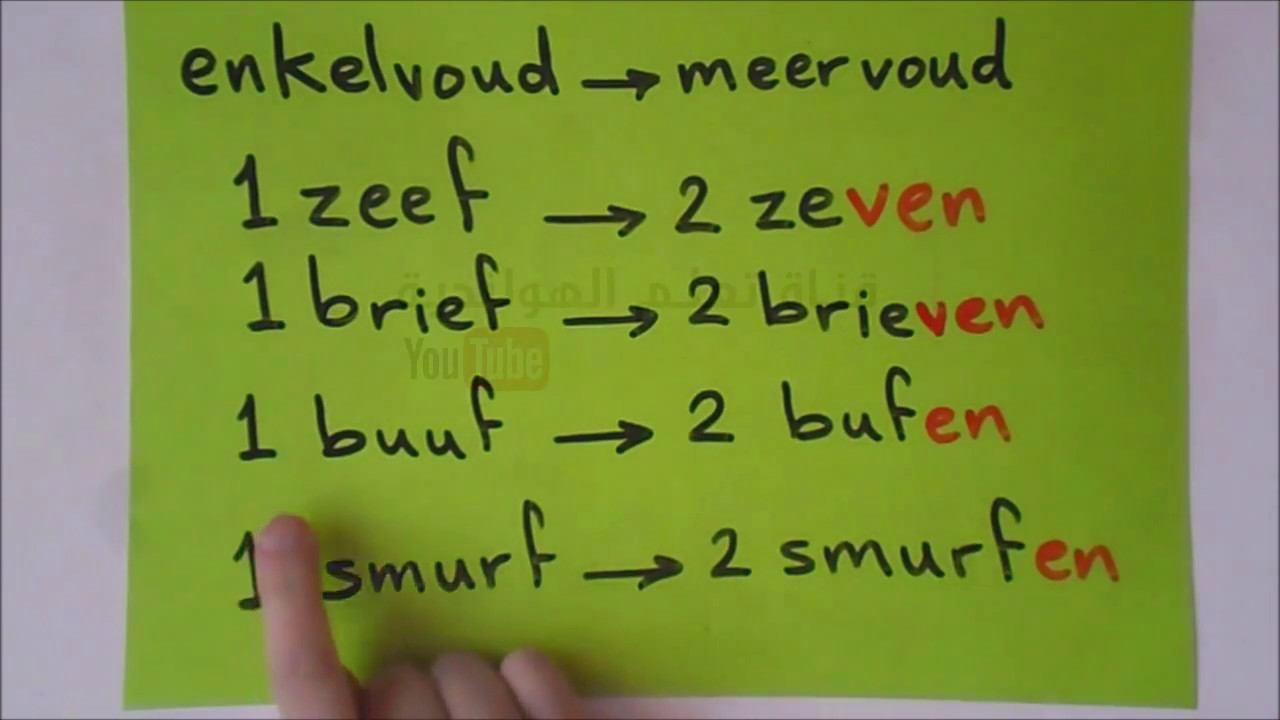 enkelvoud → meervoud
1 zeef → 2 zeven
1 brief → 2 brieven
قناة تعلم الهولندية
YouTube
1 buuf → 2 bufen
1 smurf → 2 smurfen